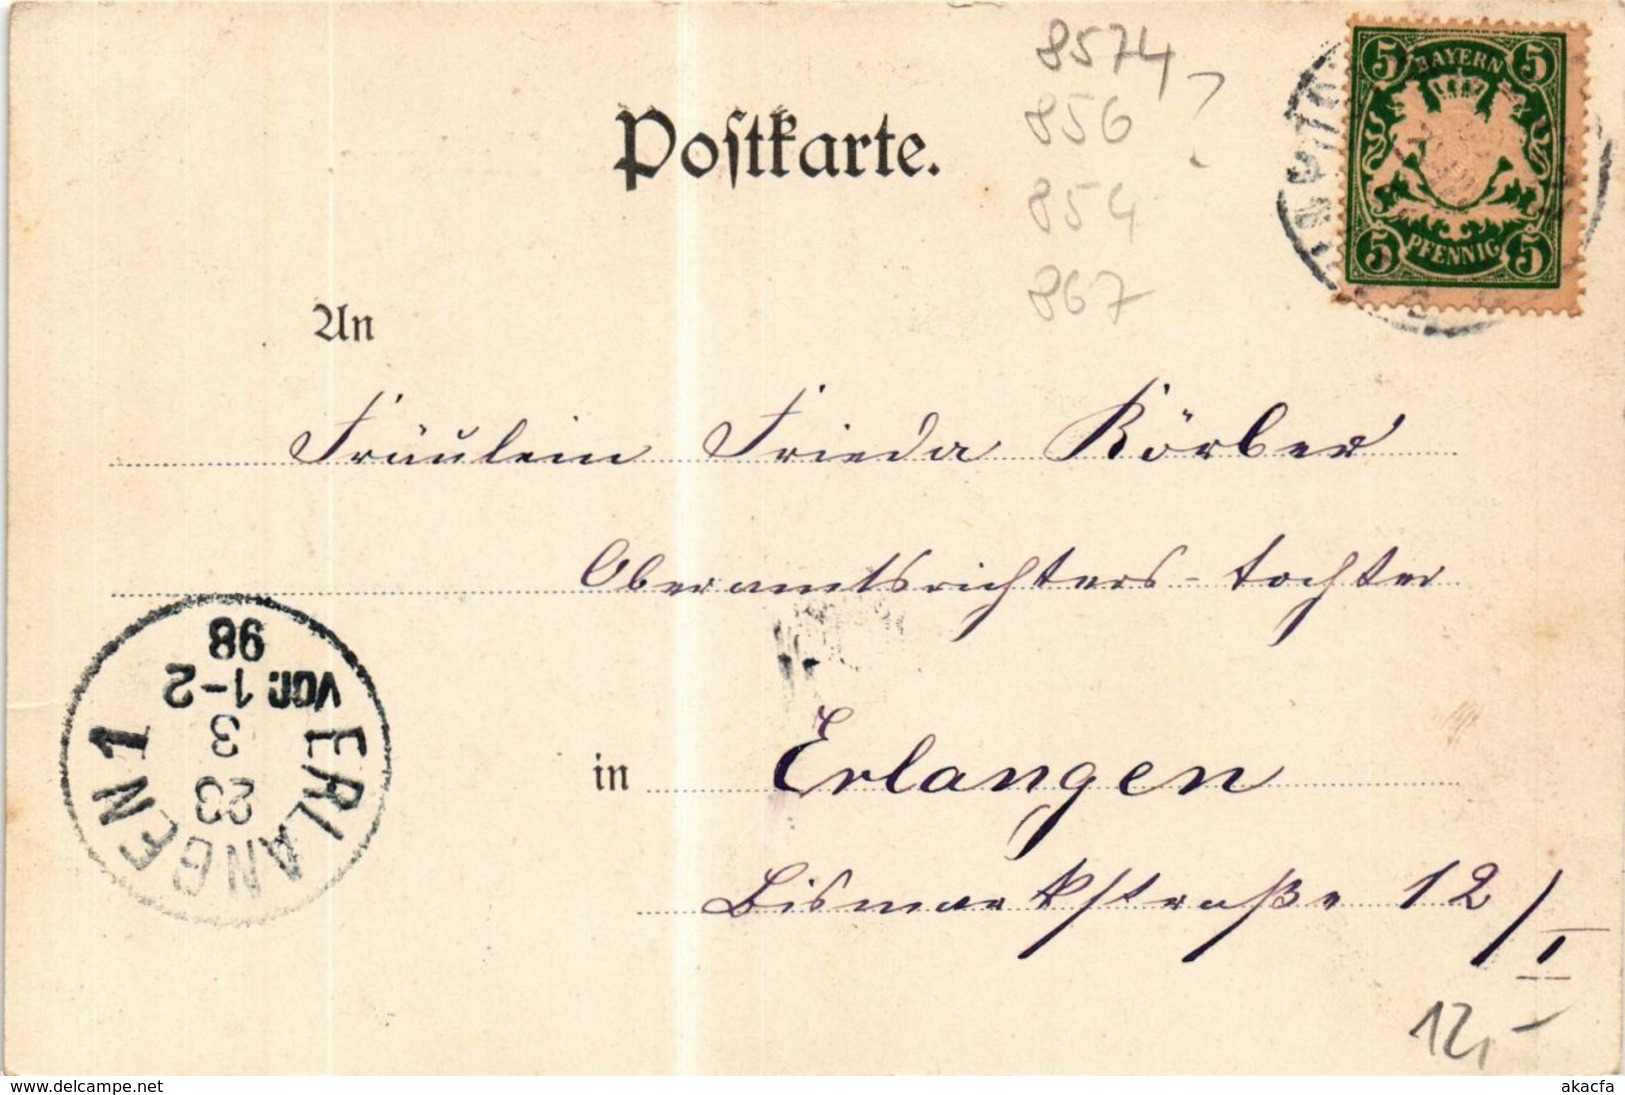 8574
856 ?
854
867
5 BAYERN 5
5 PFENNIG 5
Postkarte.
An
Fräulein Frieda Körber
Oberamtsrichters-tochter
in Erlangen
Bismarkstraße 12/I
ERLANGEN 1
23 3
VOR. 1-2
98
12,-
www.delcampe.net
akacfa